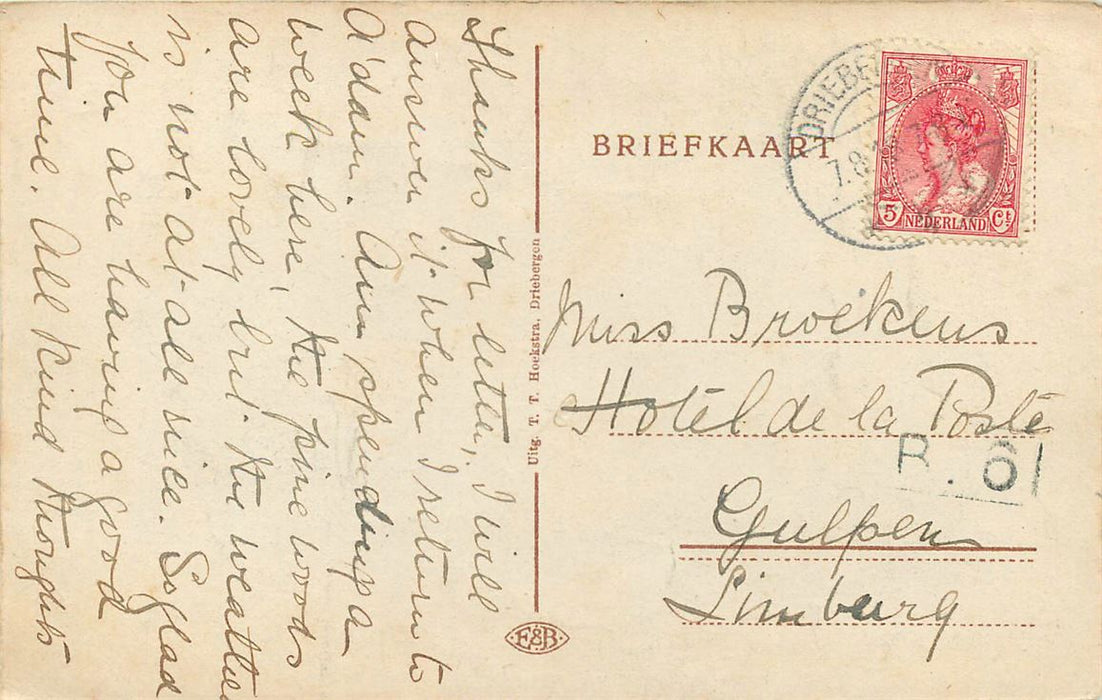 Thanks for letter, I will
answer it when I return to
A'dam. Am spending a
week here, the pine woods
are lovely but the weather
is not at all nice. So glad
you are having a good
time. All kind thoughts
BRIEFKAART
DRIEBER
7.8.1
5 NEDERLAND Ct
Miss Broekens
Hotel de la Poste
B. 6
Gulpen
Limburg
Uitg. T. T. Hoekstra, Driebergen
F&B